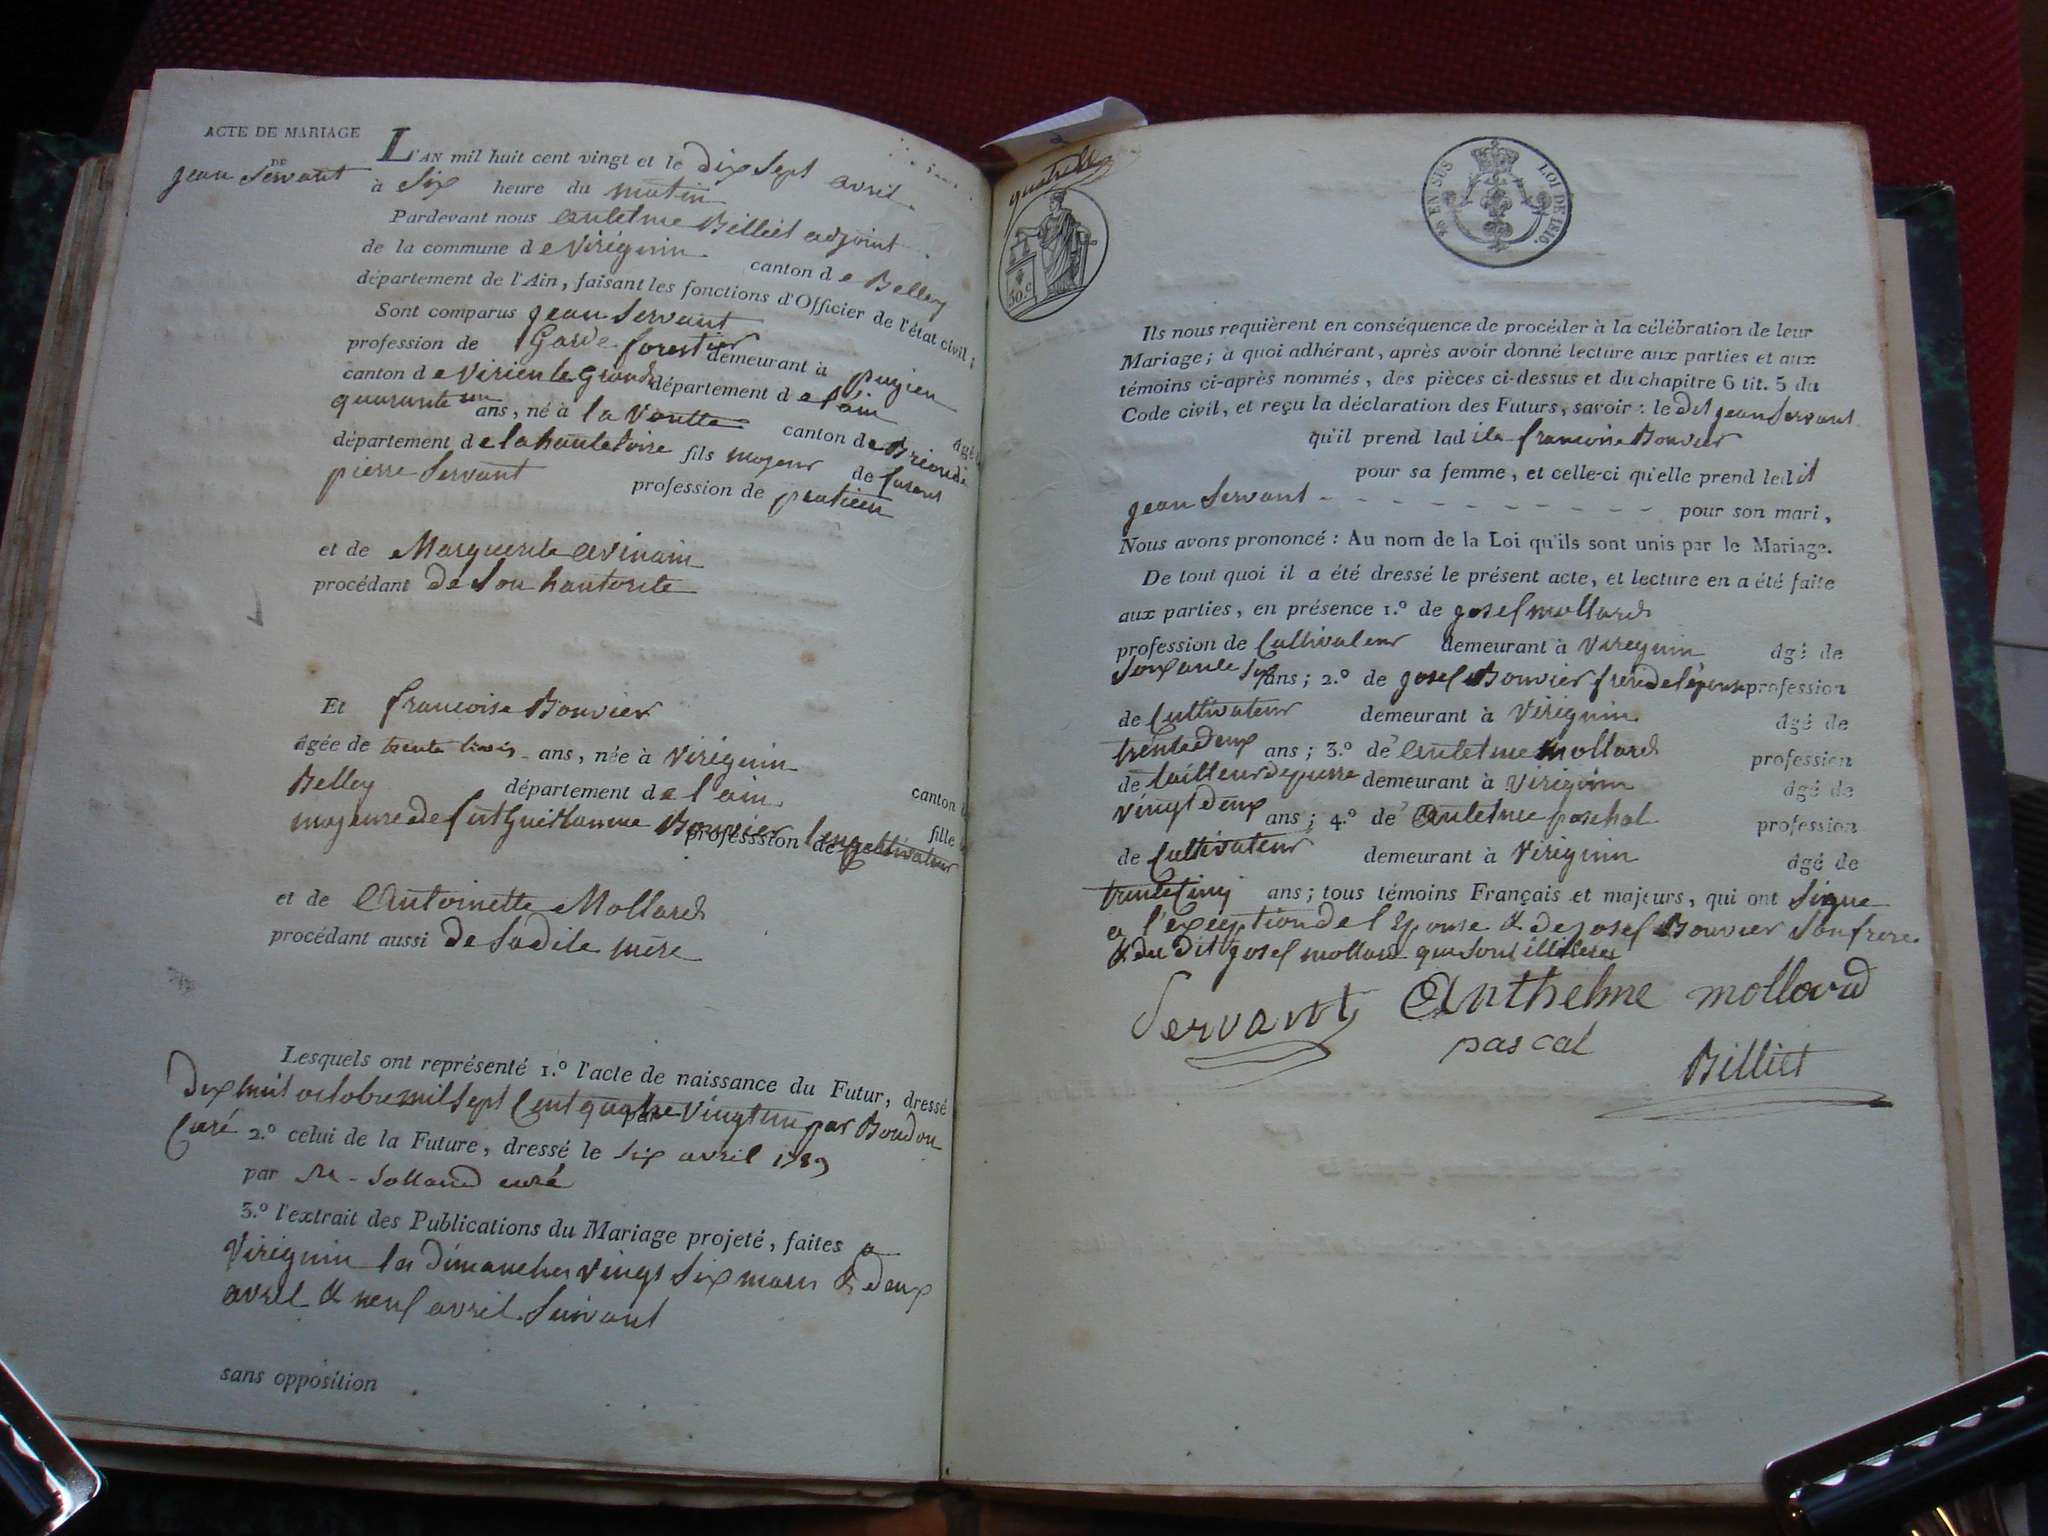 ACTE DE MARIAGE
DE
jean Servant
L'AN mil huit cent vingt et le dix Sept avril
à Six heure du matin
Pardevant nous antelme Billiet adjoint
de la commune de Viriguin canton de Belley
département de l'Ain, faisant les fonctions d'Officier de l'état civil;
Sont comparus jean Servant
profession de Garde forestier demeurant à pugieu
canton de Virieu le Grand département de l'ain âgé
quarante un ans, né à la Voutte canton de Brioude
département de la haute loire fils majeur de furent
pierre Servant profession de praticien
et de Marguerite avinain
procédant de Son hautorite
Et francoise Bouvier
âgée de trente trois ans, née à Viriguin canton
Belley département de l'ain fille
majeure de fut Guillaume Bouvier profession de cultivateur
et de antoinette Mollard
procédant aussi de Sadite mère
Lesquels ont représenté 1.º l'acte de naissance du Futur, dressé
dix huit octobre mil Sept Cent quatre Vingt un par Boudon
Curé 2.º celui de la Future, dressé le six avril 1789
par M. Jolland curé
3.º l'extrait des Publications du Mariage projeté, faites a
Viriguin les dimanches vingt Six mars & deux
avril & neuf avril Suivant
sans opposition
50.c
EN SUS LOI DE 1816.
Ils nous requièrent en conséquence de procéder à la célébration de leur
Mariage; à quoi adhérant, après avoir donné lecture aux parties et aux
témoins ci-après nommés, des pièces ci-dessus et du chapitre 6 tit. 5 du
Code civil, et reçu la déclaration des Futurs, savoir: le dit jean Servant
qu'il prend ladite francoise Bouvier
pour sa femme, et celle-ci qu'elle prend ledit
jean Servant - - - - - - - - - - pour son mari,
Nous avons prononcé: Au nom de la Loi qu'ils sont unis par le Mariage.
De tout quoi il a été dressé le présent acte, et lecture en a été faite
aux parties, en présence 1.º de josef mollard
profession de Cultivateur demeurant à Viriguin âgé de
Soixante Six ans; 2.º de josef Bouvier frere de l'épouse profession
de Cultivateur demeurant à Viriguin âgé de
trente deux ans; 3.º de antelme mollard profession
de tailleur de pierre demeurant à Viriguin âgé de
vingt deux ans; 4.º de antelme paschal profession
de Cultivateur demeurant à Viriguin âgé de
trente Cinq ans; tous témoins Français et majeurs, qui ont Signe
a l'exception de l'Epouse & de josef Bouvier Son frere
& du dit josef mollard que sont illiteres
Servant Anthelme mollard
pascal
Billiet